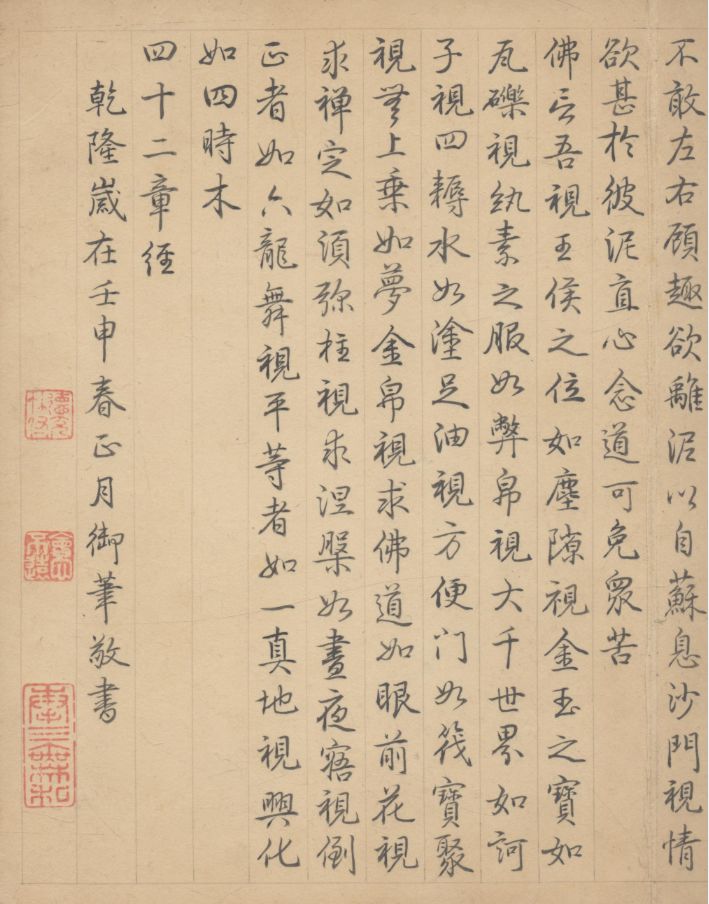 不敢左右顧趣欲離泥以自蘇息沙門視情
欲甚於彼泥直心念道可免衆苦
佛言吾視王侯之位如塵隙視金玉之寶如
瓦礫視紈素之服如弊帛視大千世界如訶
子視四耨水如塗足油視方便门如筏寶聚
視無上乗如夢金帛視求佛道如眼前花視
求禅定如須弥柱視求涅槃如晝夜寤視倒
正者如六龍舞視平等者如一真地視興化
如四時木
四十二章經
乾隆歲在壬申春正月御筆敬書
會心不遠
奉三無私